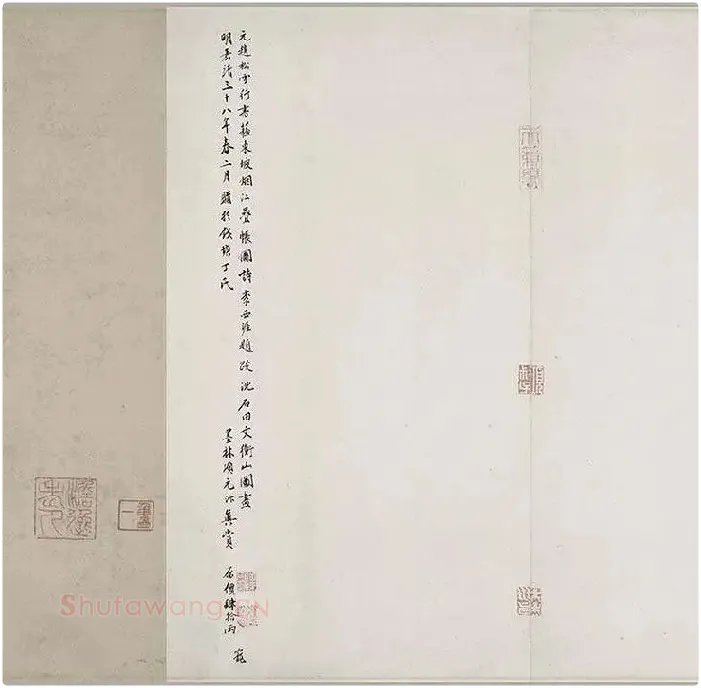 元趙松雪行書蘓東坡烟江疊帳圖詩李西涯題跋沈石田文衡山圖畫
明嘉靖三十八年春二月購於錢塘丁氏
墨林項元汴真賞
原價肆拾兩
寵
Shufawang.CN